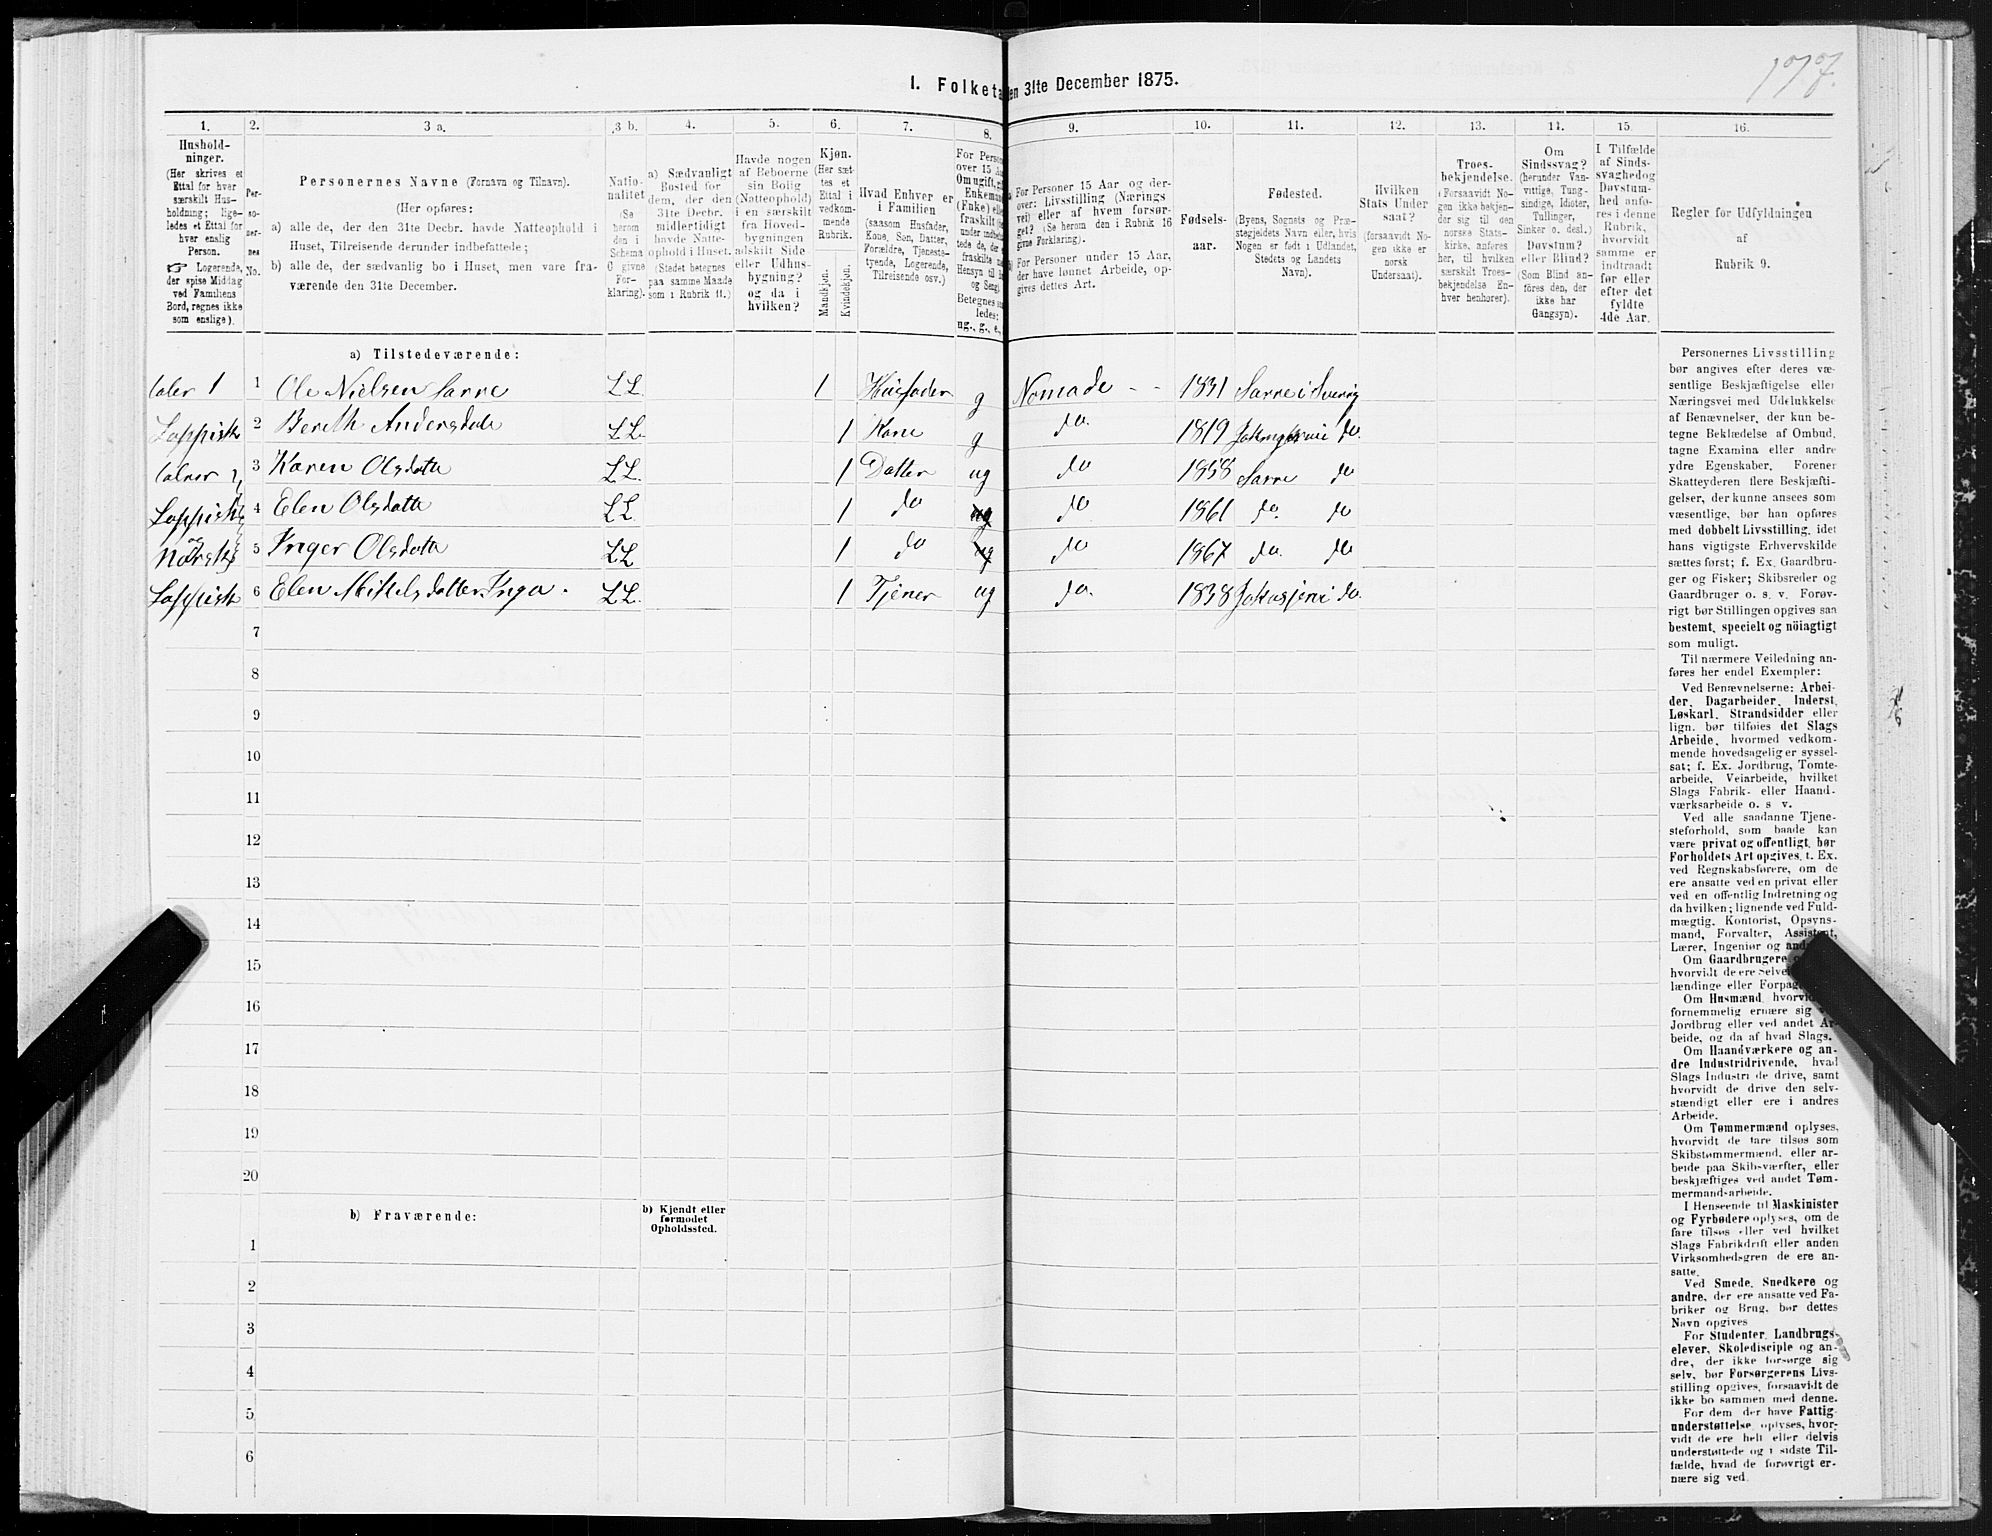 177.
I. Folketa en 31te December 1875.
1. 2. 3 a. 3 b. 4. 5. 6. 7. 8. 9. 10. 11. 12. 13. 14. 15. 16.
Hushold-
ninger.
(Her skrives et
Ettal for hver
særskilt Hus-
holdning; lige-
ledes et Ettal for
hver enslig
Person.
☞ Logerende,
der spise Middag
ved Familiens
Bord, regnes ikke
som enslige).
Per-
so-
ner-
nes
No.
Personernes Navne (Fornavn og Tilnavn).
(Her opføres:
a) alle de, der den 31te Decbr. havde Natteophold i
Huset, Tilreisende derunder indbefattede;
b) alle de, der sædvanlig bo i Huset, men vare fra-
værende den 31te December.
Natio-
nalitet
(Se
herom
den i
Schema
O givne
For-
klaring).
a) Sædvanligt
Bosted for
dem, der den
31te Decbr.
midlertidigt
havde Natte-
ophold i Huset.
(Stedet betegnes
paa samme Maade
som i Rubrik 11.)
Havde nogen
af Beboerne
sin Bolig
(Natteophold)
i en særskilt
fra Hoved-
bygningen
adskilt Side
eller Udhus-
bygning?
og da i
hvilken?
Kjøn.
(Her sæt-
tes et
Ettal i
vedkom-
mende
Rubrik.
Mandkjøn.
Kvindekjøn.
Hvad Enhver er
i Familien
(saasom Husfader,
Kone, Søn, Datter,
Forældre, Tjeneste-
tyende, Logerende,
Tilreisende osv.)
For Perso
over 15 Aa
Om ugift, gi
Enkemand
(Enke) elle
fraskilt (se
under indbefat
tede de, der
fraskilte m
Hensyn til B
og Seng).
Betegnes saa
ledes:
ug., g., e.,
a) For Personer 15 Aar og der-
over: Livsstilling (Nærings
vei) eller af hvem forsør-
get? (Se herom den i Rubrik 16
givne Forklaring).
b) For Personer under 15 Aar,
der have lønnet Arbeide, op-
gives dettes Art.
Fødsels-
aar.
Fødested.
(Byens, Sognets og Præ-
stegjeldets Navn eller, hvis
Nogen er født i Udlandet,
Stedets og Landets
Navn).
Hvilken
Stats Under
saat?
(forsaavidt No-
gen ikke er
norsk
Undersaat).
Troes-
bekjendelse.
(Forsaavidt No-
gen ikke bekjen-
der sig til den
norske Stats-
kirke, anføres
her, til hvilken
særskilt Troes-
bekjendelse En-
hver henhører).
Om
Sindssvag?
(herunder Van-
vittige, Tung-
sindige, Idioter,
Tullinger,
Sinker o. desl.)
Døvstum?
eller Blind?
(Som Blind an-
føres den, der
ikke har
Gangsyn).
I Tilfælde
af Sinds-
svaghed og
Døvstum-
hed anfø-
res i denne
Rubrik,
hvorvidt
samme er
indtraadt
før eller
efter det
fyldte
4de Aar.
Regler for Udfyldningen
af
Rubrik 9.
a) Tilstedeværende:
taler 1 1 Ole Nielsen Sarre LL. 1 Husfader g Nomade - - 1831 Sarre i Sverig
Lappisk 2 Bereth Andersdatt LL. 1 Kone g do. 1819 do.
taler 3 Karen Olsdatte LL. 1 Datter ug do 1858 Sarre do
Lappisk 4 Elen Olsdatte LL. 1 do ug do 1861 do. do
og Norsk 5 Inger Olsdatte LL 1 do ug do 1867 do. do
Lappisk 6 Elen Mikkelsdatter Inga. LL. 1 Tjener ug do. 1838 do.
7
8
9
10
11
12
13
14
15
16
17
18
19
20
b) Fraværende:
b) Kjendt eller
formodet
Opholdssted.
1
2
3
4
5
6
Personernes Livsstilling
bør angives efter deres væ-
sentlige Beskjæftigelse eller
Næringsvei med Udelukkelse
af Benævnelser, der kun be-
tegne Beklædelse af Ombud,
tagne Examina eller andre
ydre Egenskaber. Forener
Skatteyderen flere Beskjæfti-
gelser, der kunne ansees som
væsentlige, bør han opføres
med dobbelt Livsstilling, idet
hans vigtigste Erhvervskilde
sættes først; f. Ex. Gaardbru-
ger og Fisker; Skibsreder og
Gaardbruger o. s. v. Forøv-
rigt bør Stillingen opgives saa
bestemt, specielt og nöiagtigt
som muligt.
Til nærmere Veiledning an-
føres her endel Exempler:
Ved Benævnelserne: Arbei-
der, Dagarbeider, Inderst,
Løskarl, Strandsidder eller
lign. bør tilføies det Slags
Arbeide, hvormed vedkom-
mende hovedsagelig er syssel-
sat; f. Ex. Jordbrug, Tomte-
arbeide, Veiarbeide, hvilket
Slags Fabrik- eller Haand-
værksarbeide o. s v.
Ved alle saadanne Tjene-
steforhold, som baade kan
være privat og offentligt, bør
Forholdets Art opgives, t. Ex.
ved Regnskabsførere, om de
ere ansatte ved en privat eller
ved en offentlig Indretning og
da hvilken; lignende ved Fuld-
mægtig, Kontorist, Opsyns-
mand, Forvalter, Assistent,
Lærer, Ingeniør og and
Om Gaardbrugere
hvorvidt de ere Selve
lændinge eller Forpag
Om Husmænd, hvorvid
fornemmelig ernære sig
Jordbrug eller ved andet Ar-
beide, og da af hvad Slags.
Om Haandværkere og an-
dre Industridrivende, hvad
Slags Industri de drive, samt
hvorvidt de drive den selv-
stændigt eller ere i andres
Arbeide.
Om Tømmermænd oplyses,
hvorvidt de fare tilsøs som
Skibstømmermænd, eller ar-
beide paa Skibsværfter, eller
beskjæftiges ved andet Tøm-
mermandsarbeide.
I Henseende til Maskinister
og Fyrbødere oplyses, om de
fare tilsøs eller ved hvilket
Slags Fabrikdrift eller anden
Virksomhedsgren de ere an-
satte.
Ved Smede, Snedkere og
andre, der ere ansatte ved Fa-
briker og Brug, bør dettes
Navn opgives
For Studenter, Landbrugs-
elever, Skoledisciple og an-
dre, der ikke forsørge sig
selv, bør Forsørgerens Livs-
stilling opgives, forsaavidt de
ikke bo sammen med denne.
For dem, der have Fattig-
understøttelse, oplyses, hvor-
vidt de ere helt eller delvis
understøttede og i sidste Til-
fælde, hvad de forøvrigt er-
nære sig ved.